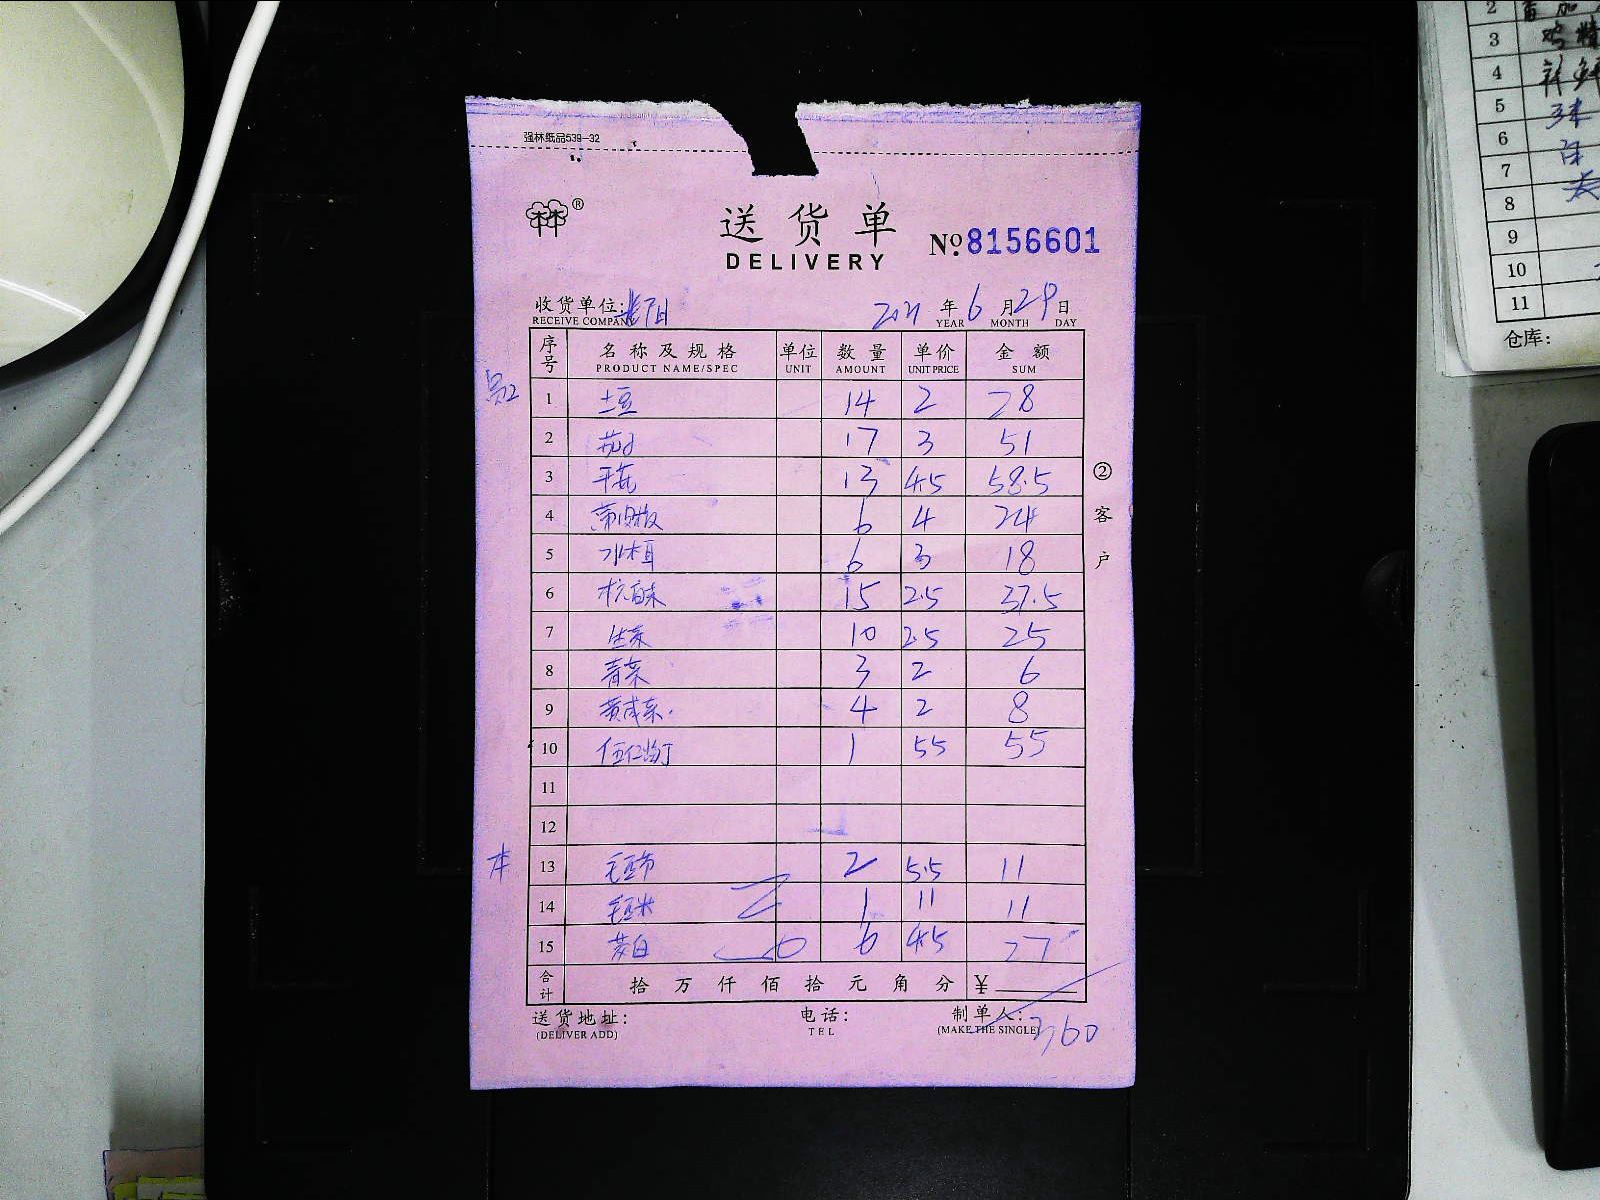 强林纸品539-32
®
送货单
№8156601
DELIVERY
收货单位: 2021年6月29日
RECEIVE COMPANY YEAR MONTH DAY
序号 名称及规格 单位 数量 单价 金额
PRODUCT NAME/SPEC UNIT AMOUNT UNIT PRICE SUM
1 土豆 14 2 28
2 茄子 17 3 51
3 平菇 13 4.5 58.5
4 6 4 24
5 水木耳 6 3 18
6 杭白菜 15 2.5 37.5
7 生菜 10 2.5 25
8 青菜 3 2 6
9 黄成菜 4 2 8
10 伍仁肉丁 1 55 55
11
12
本 13 毛豆节 2 5.5 11
14 毛豆米 1 11 11
15 茭白 6 4.5 27
合计 拾万仟佰拾元角分 ¥
360
送货地址: 电话: 制单人:
(DELIVER ADD) TEL (MAKE THE SINGLE)
②客户
2
3 鸡精
4
5
6
7
8
9
10
11
仓库: